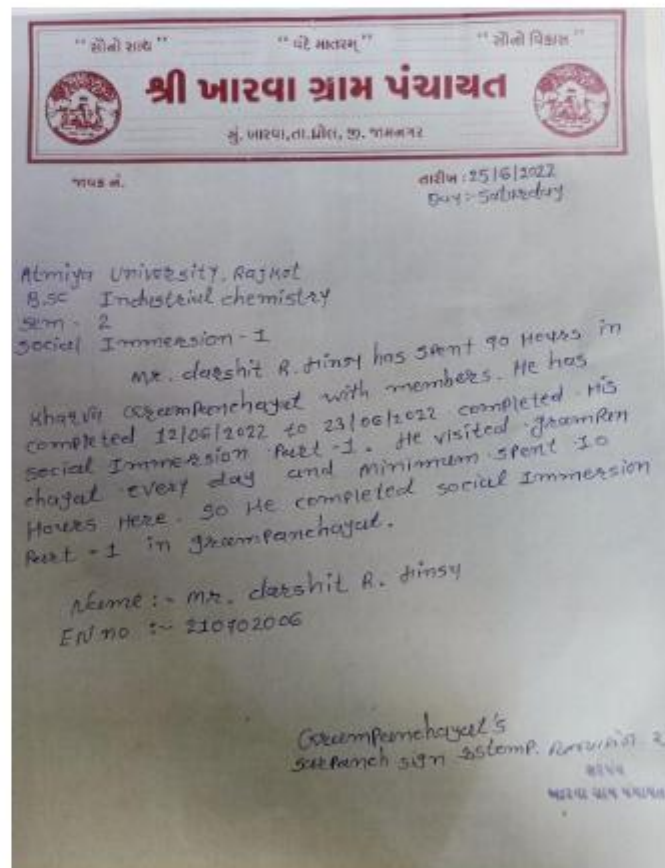 "સૌનો સાથ" "વંદે માતરમ્" "સૌનો વિકાસ"
શ્રી ખારવા ગ્રામ પંચાયત
મું. ખારવા, તા.ધ્રોલ, જી. જામનગર
જાવક નં. તારીખ : 25/6/2022
Day:- Saturday
Atmiya University, Rajkot
B.sc Industrial chemistry
sem - 2
social Immersion - 1
Mr. darshit R. has spent 90 Hours in
Kharva Grampanchayat with members. He has
completed 12/06/2022 to 23/06/2022 completed His
social Immersion Part - 1. He visited grampan
chayat every day and minimum spent 10
Hours Here. so He completed social Immersion
Part - 1 in grampanchayat.
Name :- Mr. darshit R.
EN no :- 210702006
Grampanchayat's
sarpanch sign & stamp.
સરપંચ
ખારવા ગ્રામ પંચાયત